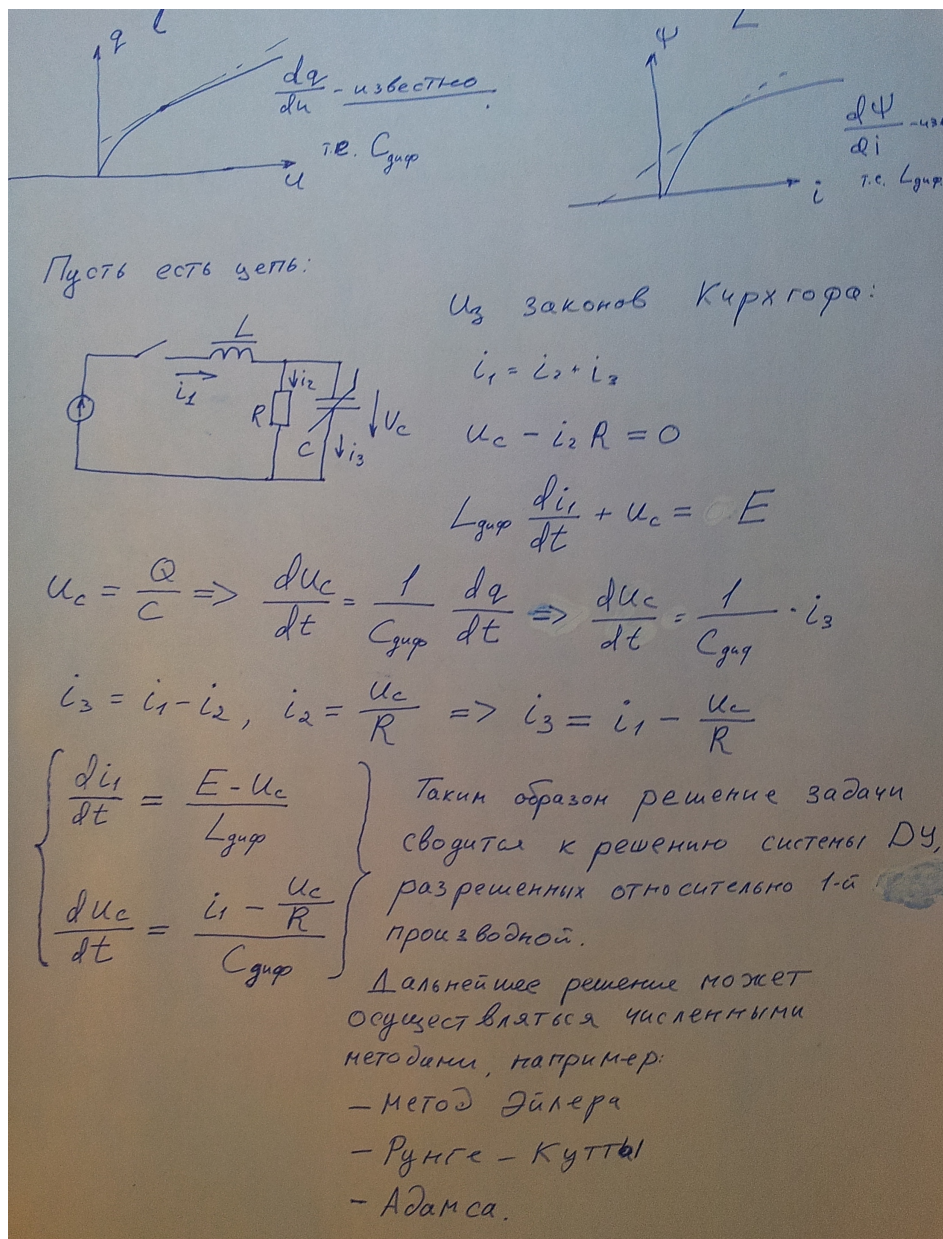 q
dq/du - известно.
т.е. Cдиф
u
Ψ
L
dΨ/di
т.е. Lдиф
i
Пусть есть цепь:
Из законов Кирхгофа:
L
i1
i2
R
C
i3
Uc
i1 = i2 + i3
uc - i2 R = 0
Lдиф di1/dt + uc = E
uc = Q/C => duc/dt = 1/Cдиф dq/dt => duc/dt = 1/Cдиф · i3
i3 = i1 - i2, i2 = uc/R => i3 = i1 - uc/R
di1/dt = (E - uc)/Lдиф
duc/dt = (i1 - uc/R)/Cдиф
Таким образом решение задачи
сводится к решению системы DУ,
разрешенных относительно 1-й
производной.
Дальнейшее решение может
осуществляться численными
методами, например:
- Метод Эйлера
- Рунге - Кутты
- Адамса.